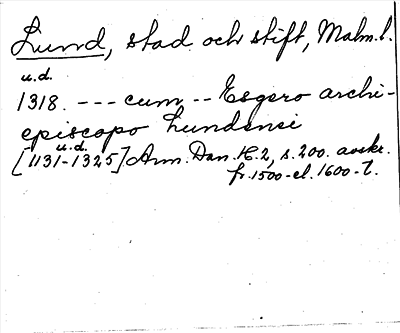 Lund, stad och stift, Malm.l.
u.d.
1318. --- cum -- Esgero archi-
episcopo Lundensi
u.d.
[1131-1325]. Ann. Dan. K.2, s.200. avskr.
fr. 1500-el. 1600-t.